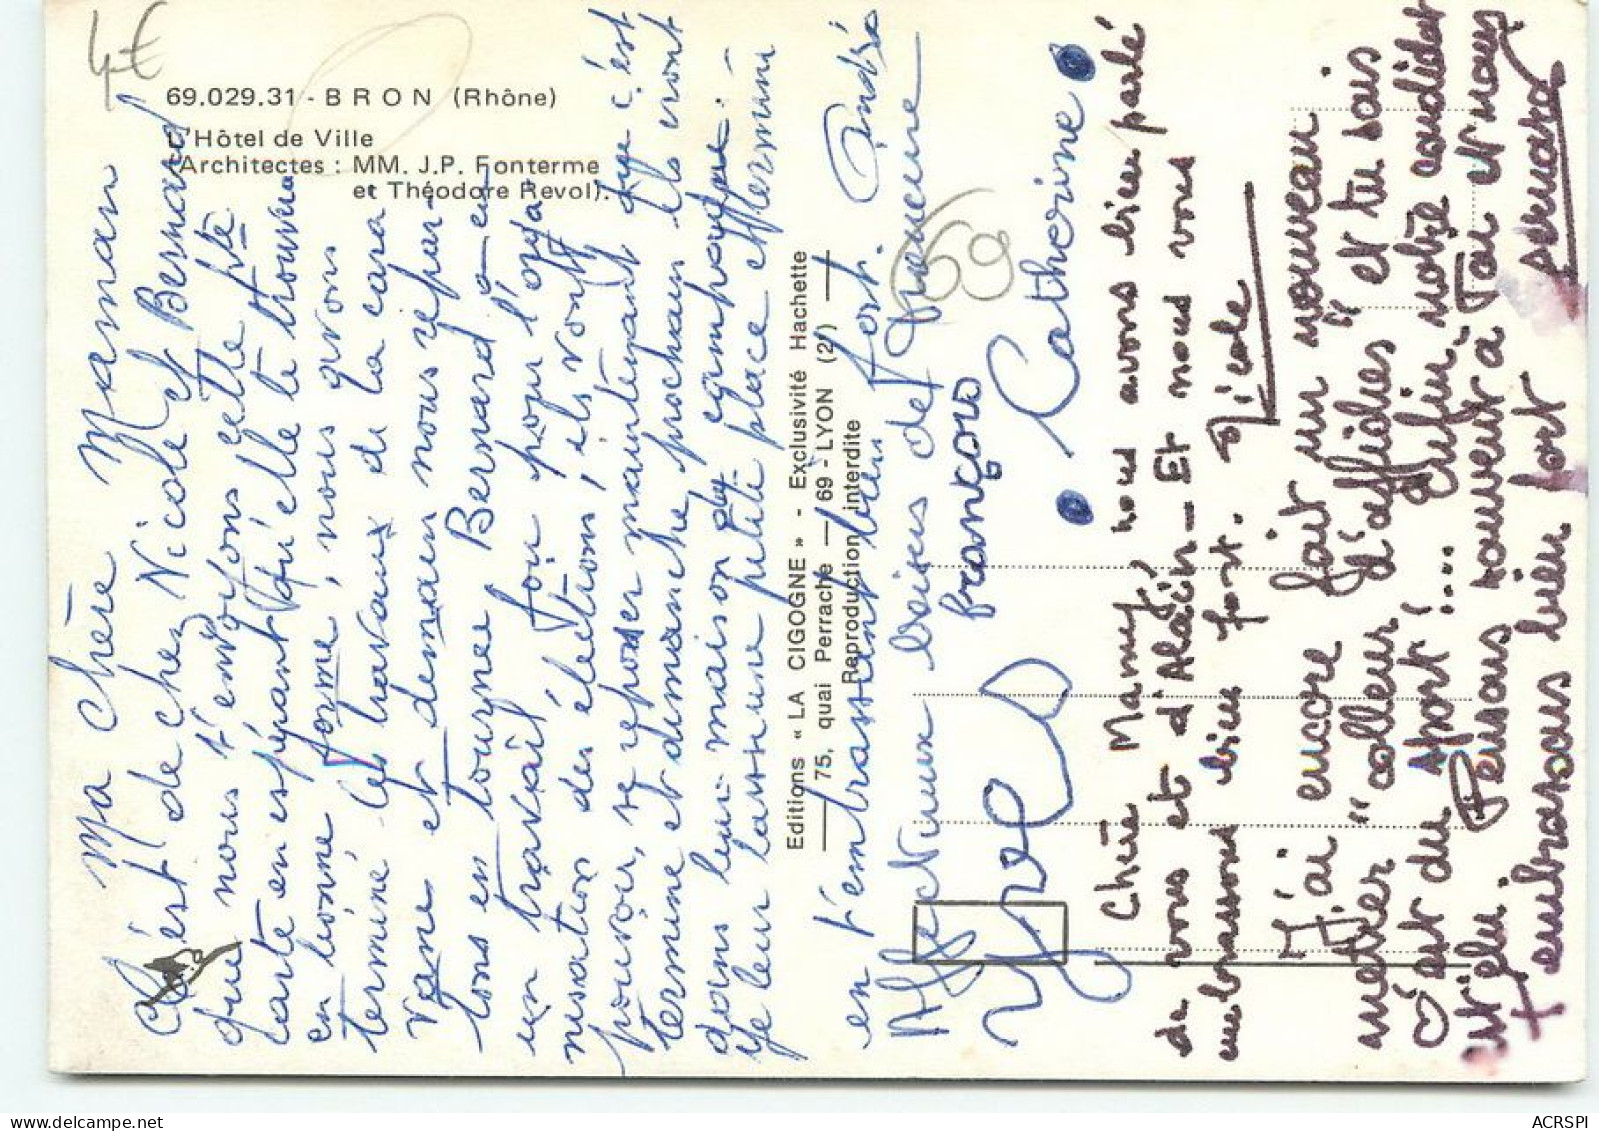 4€
69.029.31 - BRON (Rhône)
L'Hôtel de Ville
(Architectes : MM. J.P. Fonterme
et Théodore Revol).
Ma Chère Maman
C'est de chez Nicole et Bernard
que nous t'envoyons cette
carte en espérant qu'elle te trouvera
en bonne forme, nous avons
terminé les travaux de la cara
vane et demain nous repar
tons en tournée Bernard a eu
un travail fou pour l'orga
nisation des élections, ils vont
pouvoir se reposer maintenant que c'est
terminé et dimanche prochain ils iront
dans leur maison de campagne.
Je leur laisse une petite place et
en t'embrassant bien fort. André
Editions « LA CIGOGNE » - Exclusivité Hachette
75, quai Perrache — 69 - LYON (2e)
Reproduction interdite
69
Affectueux baisers de
françois
Yves
Catherine
Chère Mamy, nous avons bien parlé
de vous et d'Alain - Et nous vous
embrassons bien fort. Nicole
J'ai encore fait un nouveau
métier "colleur d'affiches" et tu sais
c'est du sport !.... Enfin notre candidat
est élu. Pensons souvent à Toi et nous
t'embrassons bien fort Bernard
ACRSPI